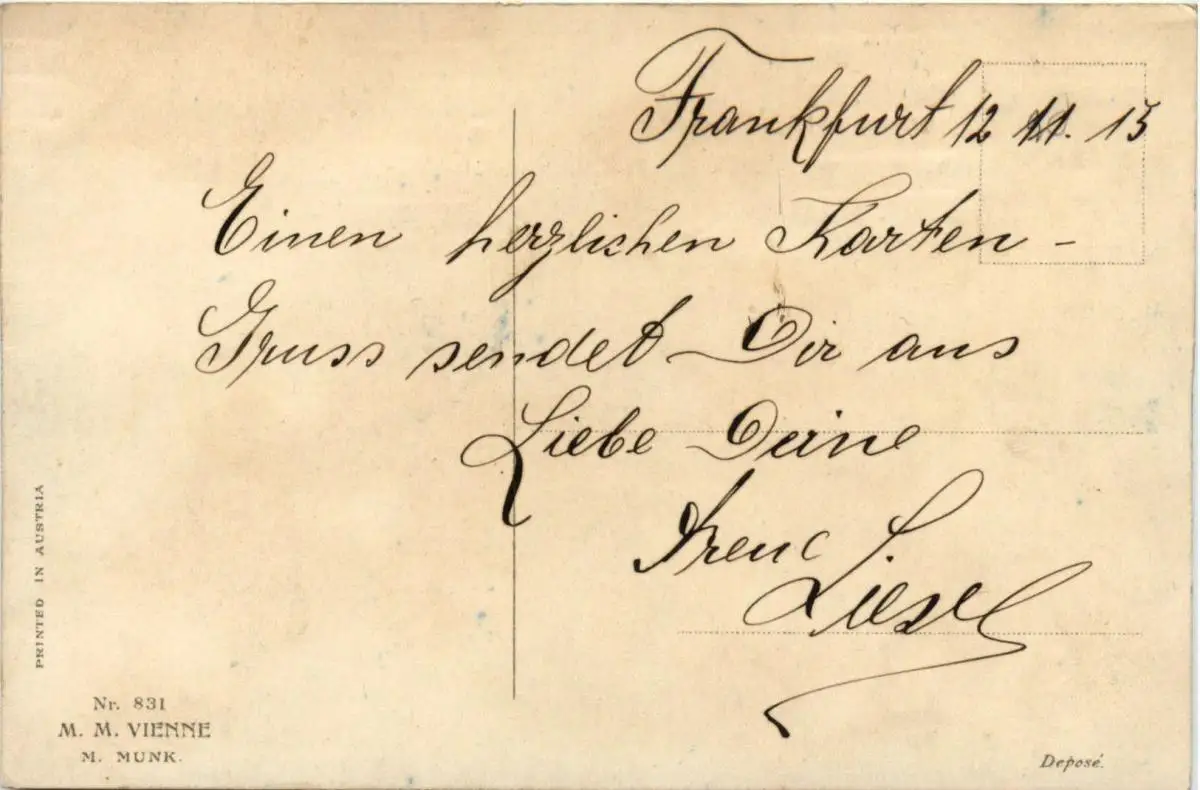 Frankfurt 12 11. 13
Einen herzlichen Karten-
Gruss sendet Dir aus
Liebe Deine
Irene L.
Liesel
PRINTED IN AUSTRIA
Nr. 831
M. M. VIENNE
M. MUNK.
Deposé.